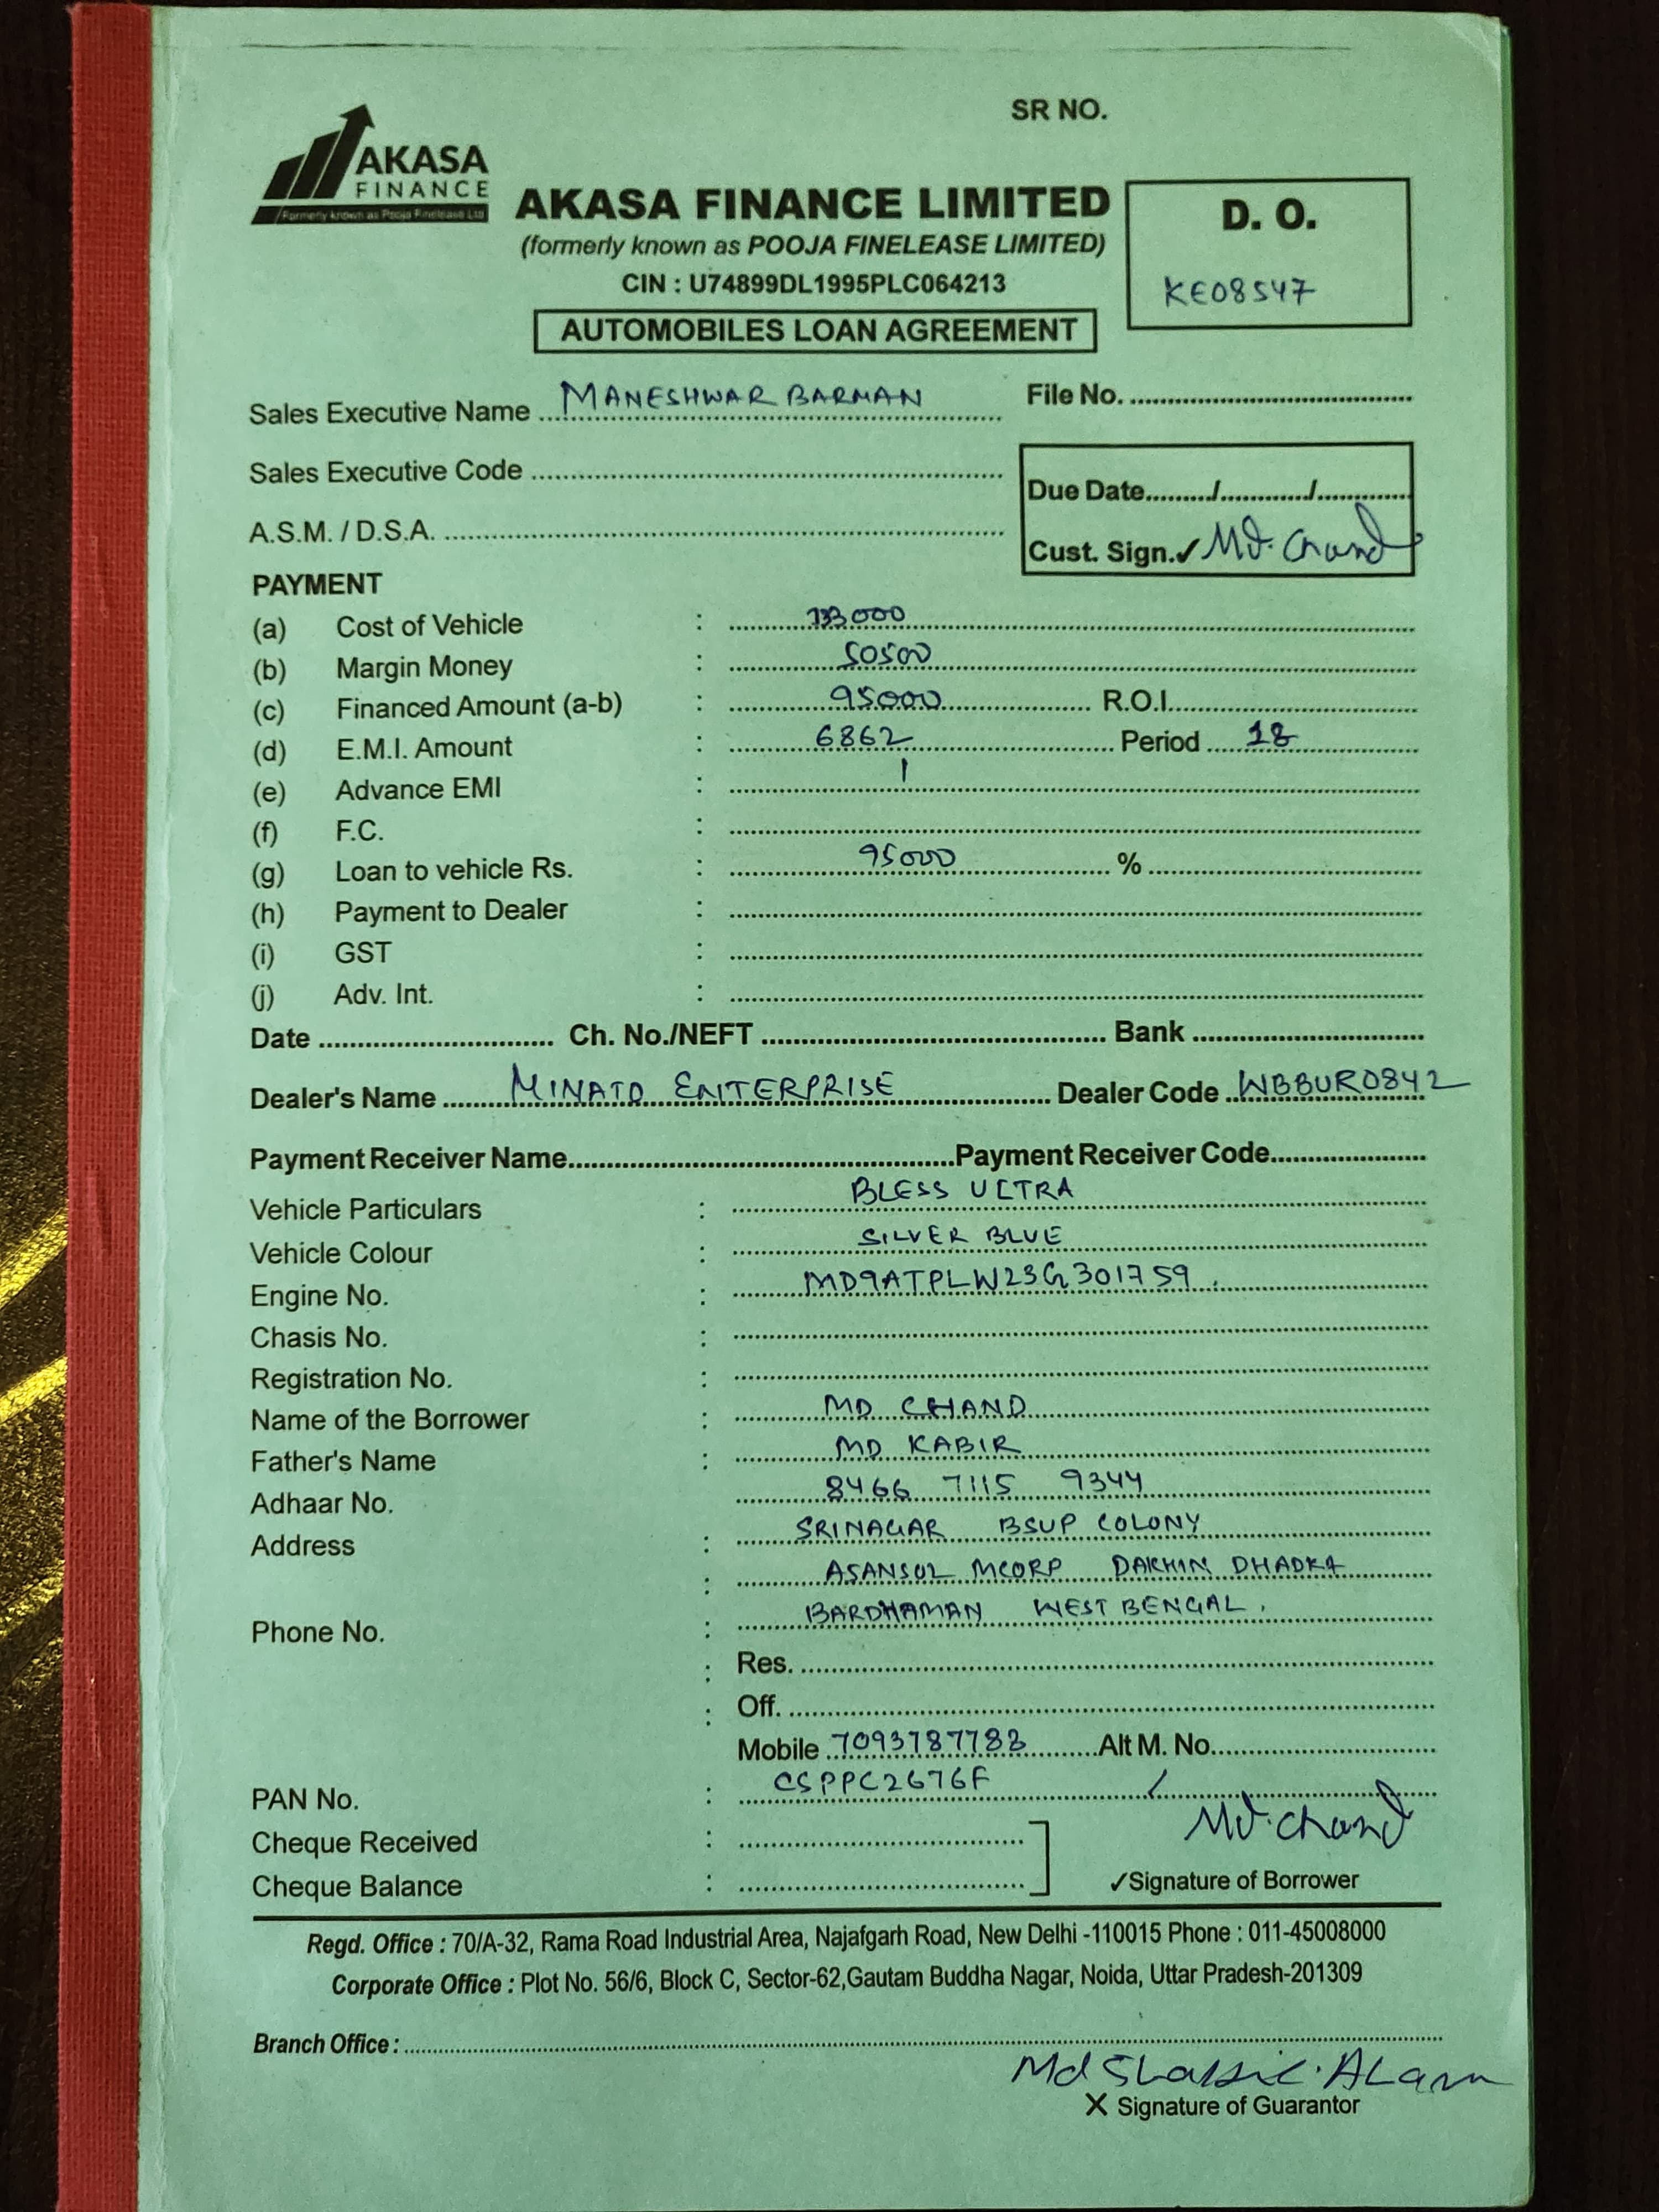 SR NO.
AKASA
FINANCE
Formerly known as Pooja Finelease Ltd
AKASA FINANCE LIMITED
(formerly known as POOJA FINELEASE LIMITED)
CIN : U74899DL1995PLC064213
AUTOMOBILES LOAN AGREEMENT
D. O.
KE08547
Sales Executive Name MANESHWAR BARMAN
File No.
Sales Executive Code
Due Date / /
A.S.M. / D.S.A.
Cust. Sign.✓ Md. Chand
PAYMENT
(a) Cost of Vehicle : 133000
(b) Margin Money : 50500
(c) Financed Amount (a-b) : 95000 R.O.I.
(d) E.M.I. Amount : 6862 Period 18
(e) Advance EMI : 1
(f) F.C. :
(g) Loan to vehicle Rs. : 95000 %
(h) Payment to Dealer :
(i) GST :
(j) Adv. Int. :
Date Ch. No./NEFT Bank
Dealer's Name MINATO ENTERPRISE Dealer Code WBBUR0842
Payment Receiver Name Payment Receiver Code
Vehicle Particulars : BLESS ULTRA
Vehicle Colour : SILVER BLUE
Engine No. : MD9ATPLW23G301759
Chasis No. :
Registration No. :
Name of the Borrower : MD CHAND
Father's Name : MD KABIR
Adhaar No. 8466 7115 9344
Address : SRINAGAR BSUP COLONY
: ASANSOL MCORP DAKHIN DHADKA
Phone No. : BARDHAMAN WEST BENGAL.
: Res.
: Off.
Mobile 7093787783 Alt M. No.
PAN No. : CSPPC2676F
Cheque Received : Md. Chand
Cheque Balance : ✓Signature of Borrower
Regd. Office : 70/A-32, Rama Road Industrial Area, Najafgarh Road, New Delhi -110015 Phone : 011-45008000
Corporate Office : Plot No. 56/6, Block C, Sector-62,Gautam Buddha Nagar, Noida, Uttar Pradesh-201309
Branch Office :
Md ALam
X Signature of Guarantor